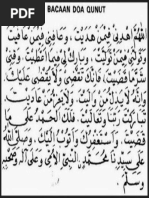 BACAAN DOA QUNUT
اَللّٰهُمَّ اهْدِنِيْ فِيْمَنْ هَدَيْتَ، وَعَافِنِيْ فِيْمَنْ عَافَيْتَ
وَتَوَلَّنِيْ فِيْمَنْ تَوَلَّيْتَ، وَبَارِكْ لِيْ فِيْمَا أَعْطَيْتَ، وَقِنِيْ
شَرَّ مَا قَضَيْتَ، فَإِنَّكَ تَقْضِيْ وَلَا يُقْضَى عَلَيْكَ
وَإِنَّهُ لَا يَذِلُّ مَنْ وَالَيْتَ، وَلَا يَعِزُّ مَنْ عَادَيْتَ
تَبَارَكْتَ رَبَّنَا وَتَعَالَيْتَ، فَلَكَ الْحَمْدُ عَلَى مَا
قَضَيْتَ، وَأَسْتَغْفِرُكَ وَأَتُوْبُ إِلَيْكَ، وَصَلَّى اللهُ
عَلَى سَيِّدِنَا مُحَمَّدٍ النَّبِيِّ الْأُمِّيِّ وَعَلَى آلِهِ وَصَحْبِهِ
وَسَلَّمَ.